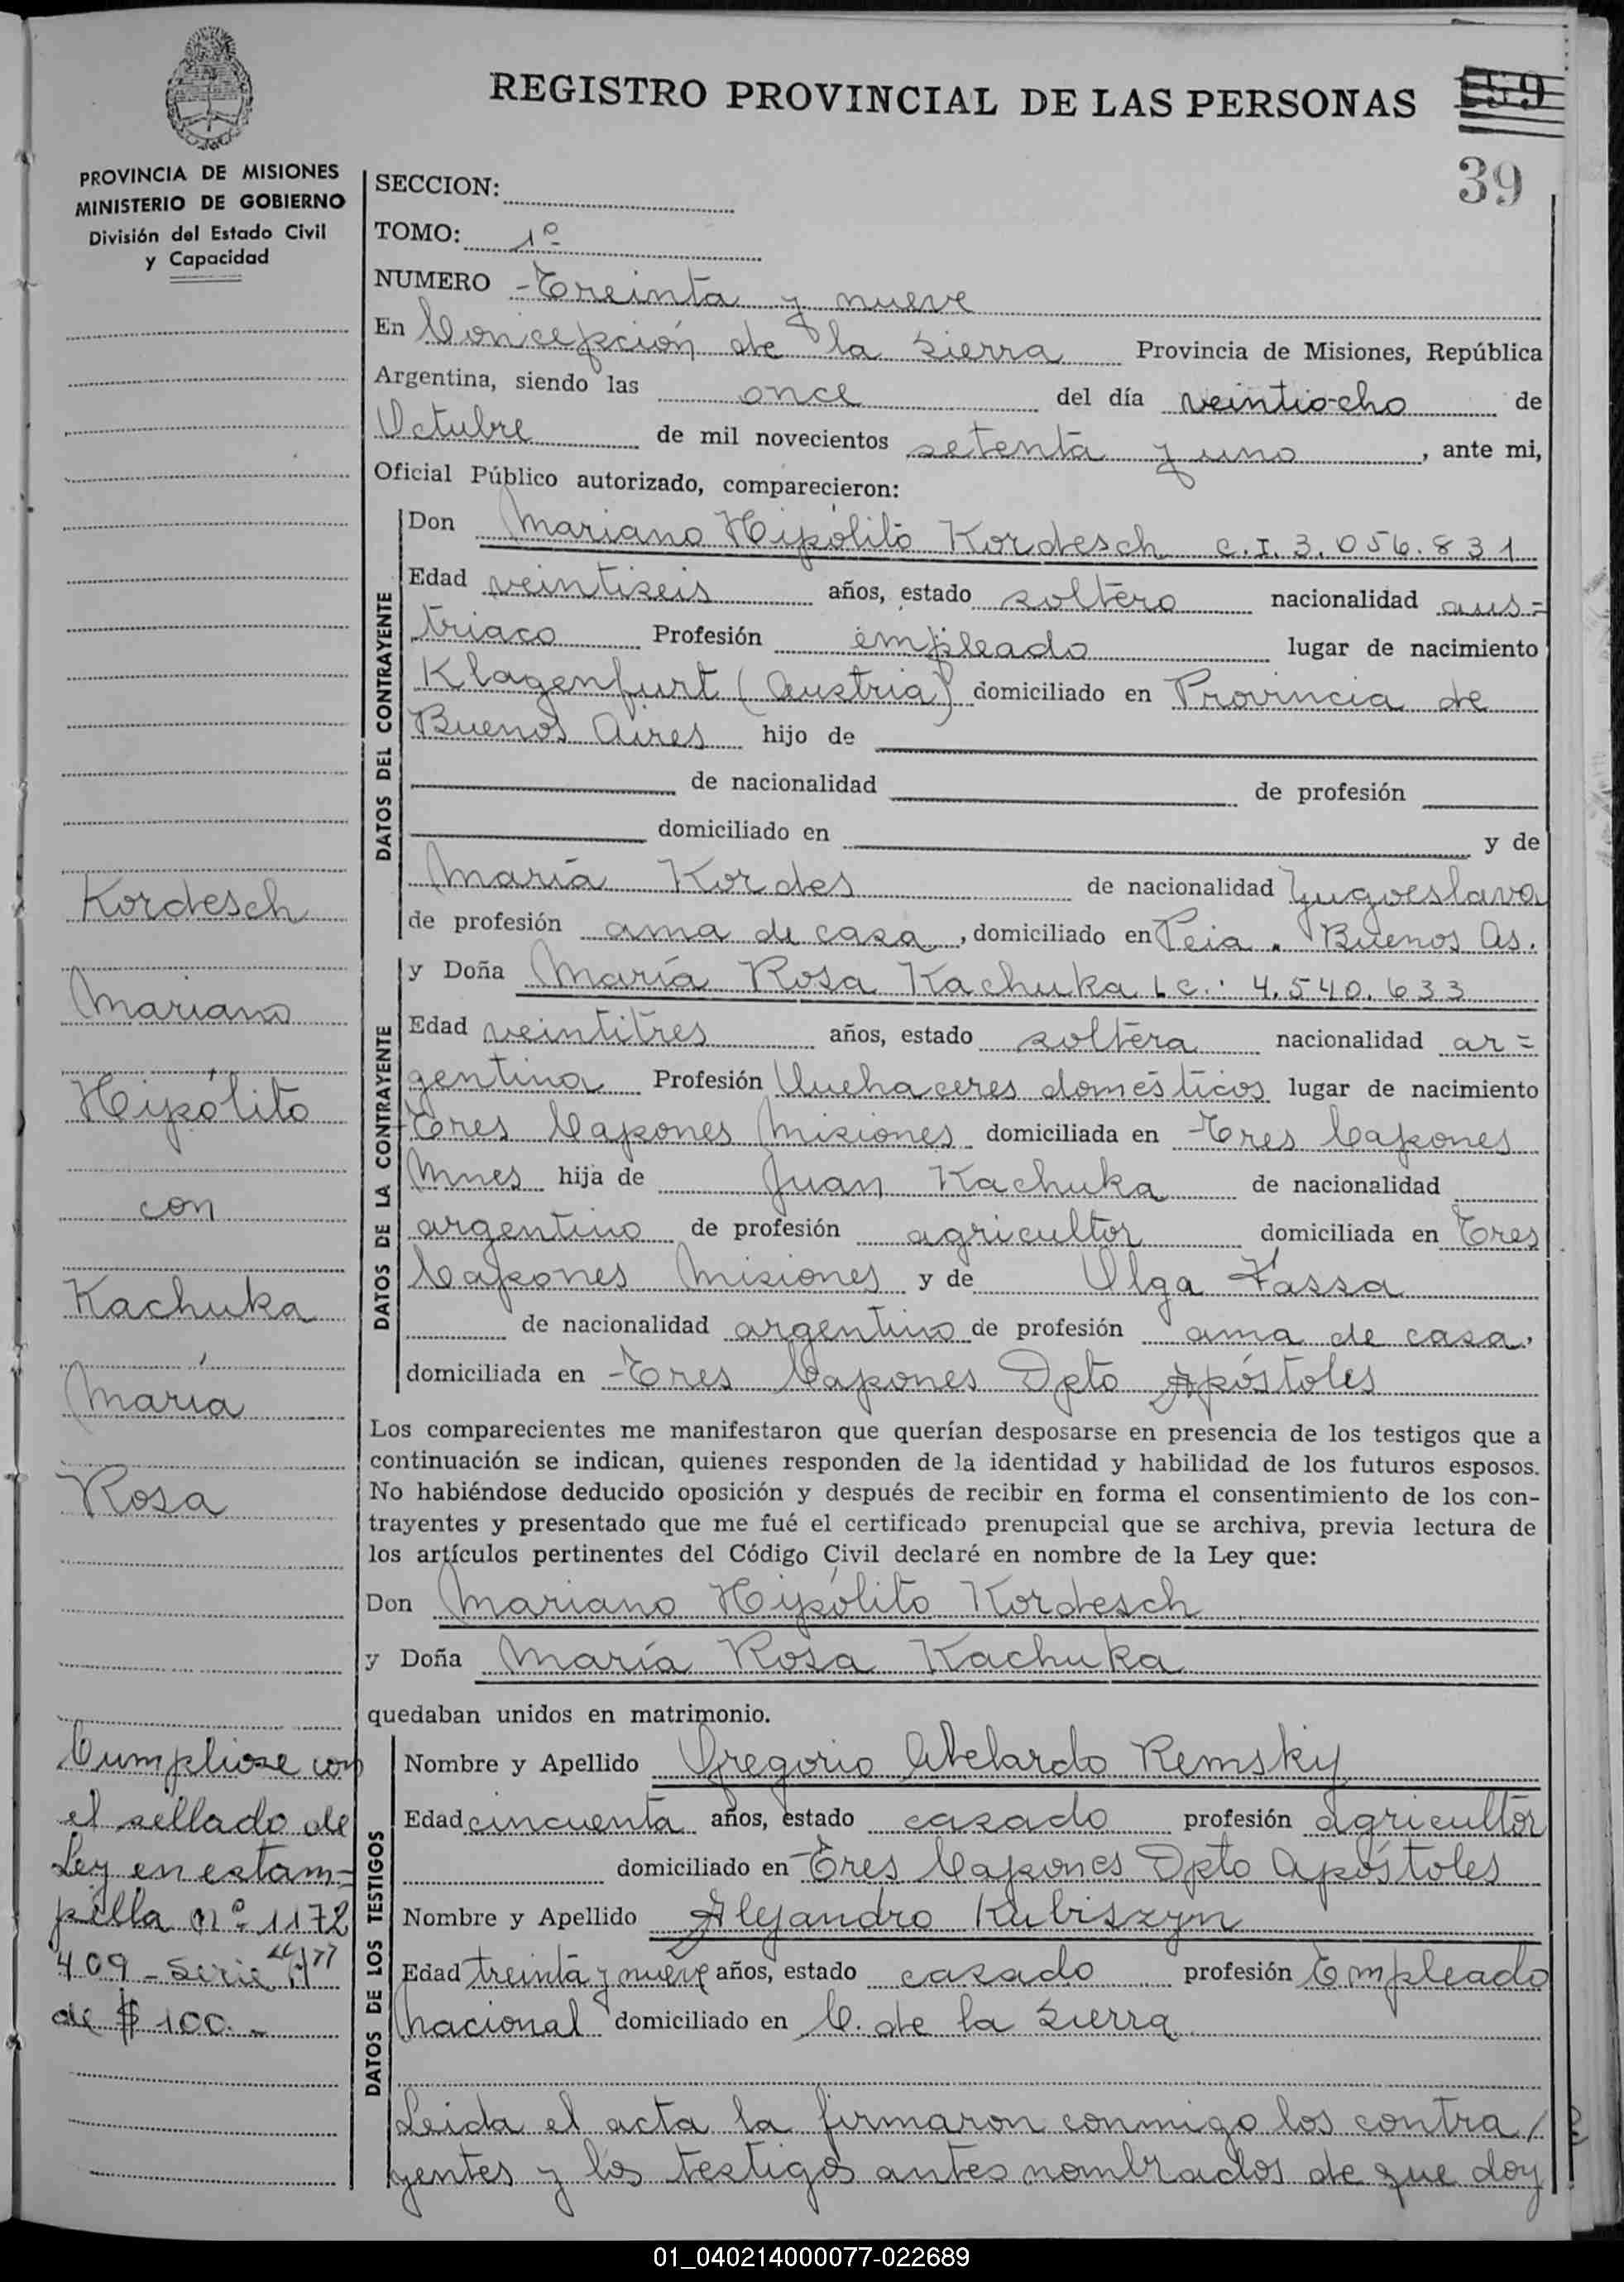 REGISTRO PROVINCIAL DE LAS PERSONAS
159
39
PROVINCIA DE MISIONES
MINISTERIO DE GOBIERNO
División del Estado Civil
y Capacidad
SECCION:
TOMO: 1º
NUMERO - Treinta y nueve
En Concepción de la Sierra Provincia de Misiones, República
Argentina, siendo las once del día veintiocho de
Octubre de mil novecientos setenta y uno, ante mi,
Oficial Público autorizado, comparecieron:
DATOS DEL CONTRAYENTE
Don Mariano Hipólito Kordesch C.I. 3.056.831
Edad veintiseis años, estado soltero nacionalidad aus=
triaco Profesión empleado lugar de nacimiento
Klagenfurt (Austria) domiciliado en Provincia de
Buenos Aires hijo de
de nacionalidad de profesión
domiciliado en y de
María Kordes de nacionalidad Yugoeslava
de profesión ama de casa, domiciliado en Pcia. Buenos As.
DATOS DE LA CONTRAYENTE
y Doña María Rosa Kachuka L.C.: 4.540.633
Edad veintitres años, estado soltera nacionalidad ar=
gentina Profesión Quehaceres domésticos lugar de nacimiento
Tres Capones Misiones domiciliada en Tres Capones
Mnes hija de Juan Kachuka de nacionalidad
argentino de profesión agricultor domiciliada en Tres
Capones Misiones y de Olga Fassa
de nacionalidad argentino de profesión ama de casa,
domiciliada en - Tres Capones Dpto Apóstoles
Los comparecientes me manifestaron que querían desposarse en presencia de los testigos que a
continuación se indican, quienes responden de la identidad y habilidad de los futuros esposos.
No habiéndose deducido oposición y después de recibir en forma el consentimiento de los con-
trayentes y presentado que me fué el certificado prenupcial que se archiva, previa lectura de
los artículos pertinentes del Código Civil declaré en nombre de la Ley que:
Don Mariano Hipólito Kordesch
y Doña María Rosa Kachuka
quedaban unidos en matrimonio.
DATOS DE LOS TESTIGOS
Nombre y Apellido Gregorio Abelardo Remsky
Edad cincuenta años, estado casado profesión agricultor
domiciliado en Tres Capones Dpto Apóstoles
Nombre y Apellido Alejandro Kubiszyn
Edad treinta y nueve años, estado casado profesión Empleado
Nacional domiciliado en C. de la Sierra
Leida el acta la firmaron conmigo los contra/
yentes y los testigos antes nombrados de que doy
Kordesch
Mariano
Hipólito
con
Kachuka
María
Rosa
Cumpliose con
el sellado de
Ley en estam=
pilla nº 1172
409 - Serie "A"
de $ 100.-
01_040214000077-022689